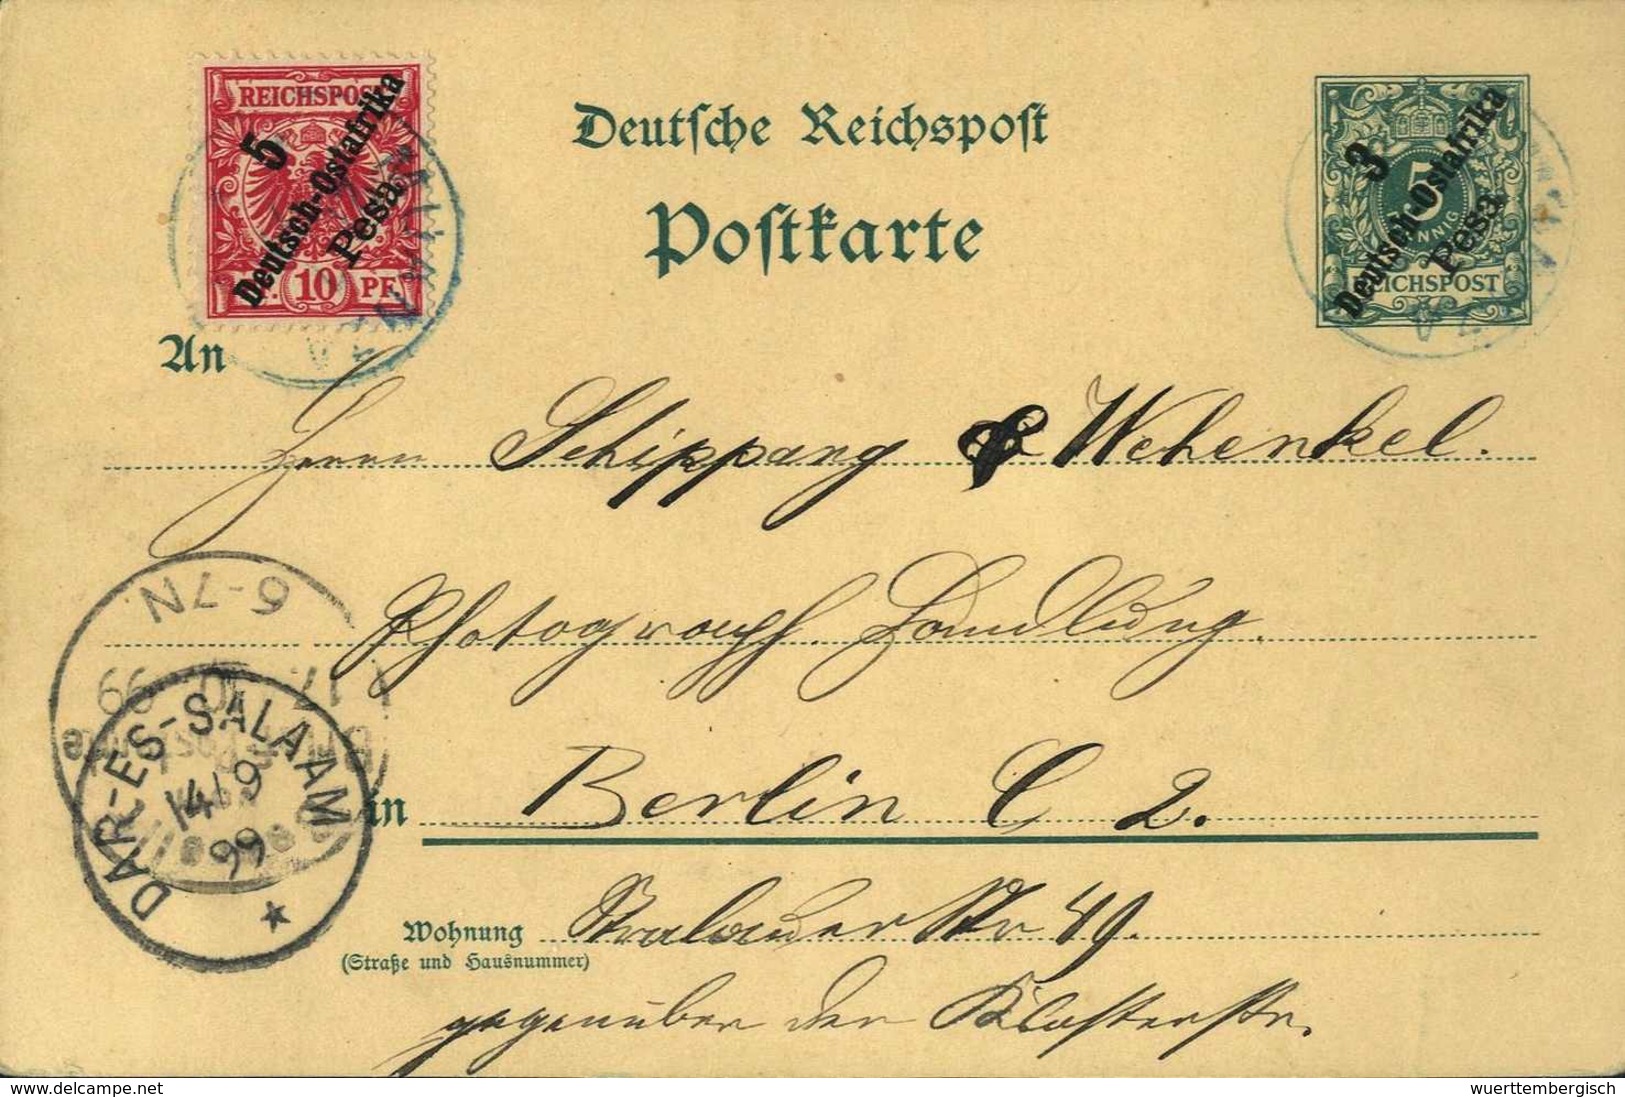 REICHSPOST
5
Deutsch-Ostafrika
Pesa
10 PF.
Deutsche Reichspost
Postkarte
3
5
Deutsch-Ostafrika
Pesa
REICHSPOST
An
Herrn Schippang & Wehenkel.
Photograph. Handlung.
6-7N.
99
DAR-ES-SALAAM
14/9
99
in Berlin C 2.
Wohnung Stralauer Str 49.
(Straße und Hausnummer)
gegenüber der Klosterstr.
www.delcampe.net
wuerttembergisch